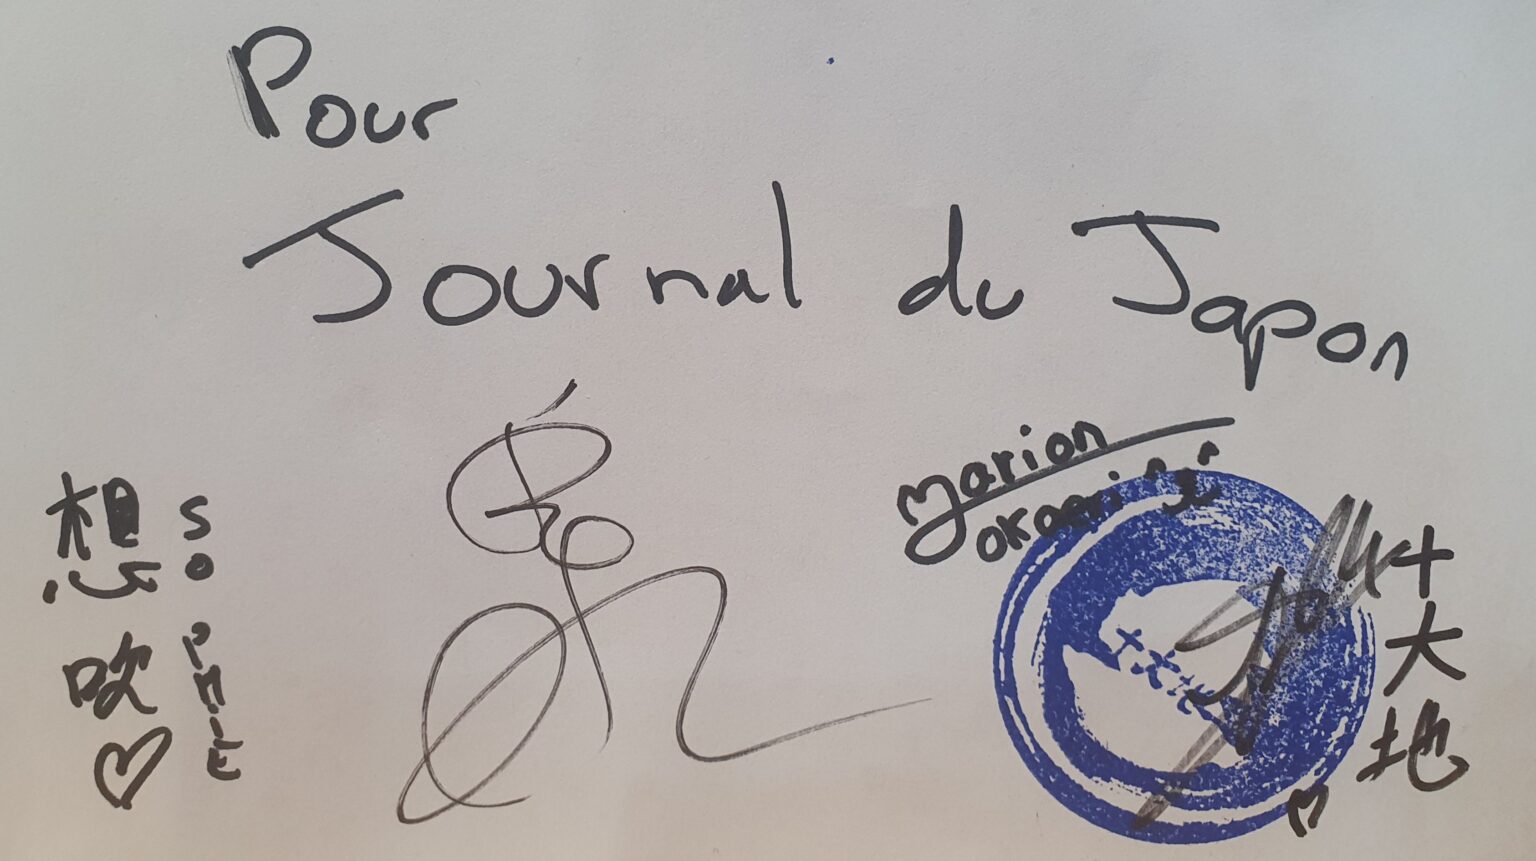 Pour
Journal du Japon
想吹♡
SOPHIE
marion
okaeri
大地